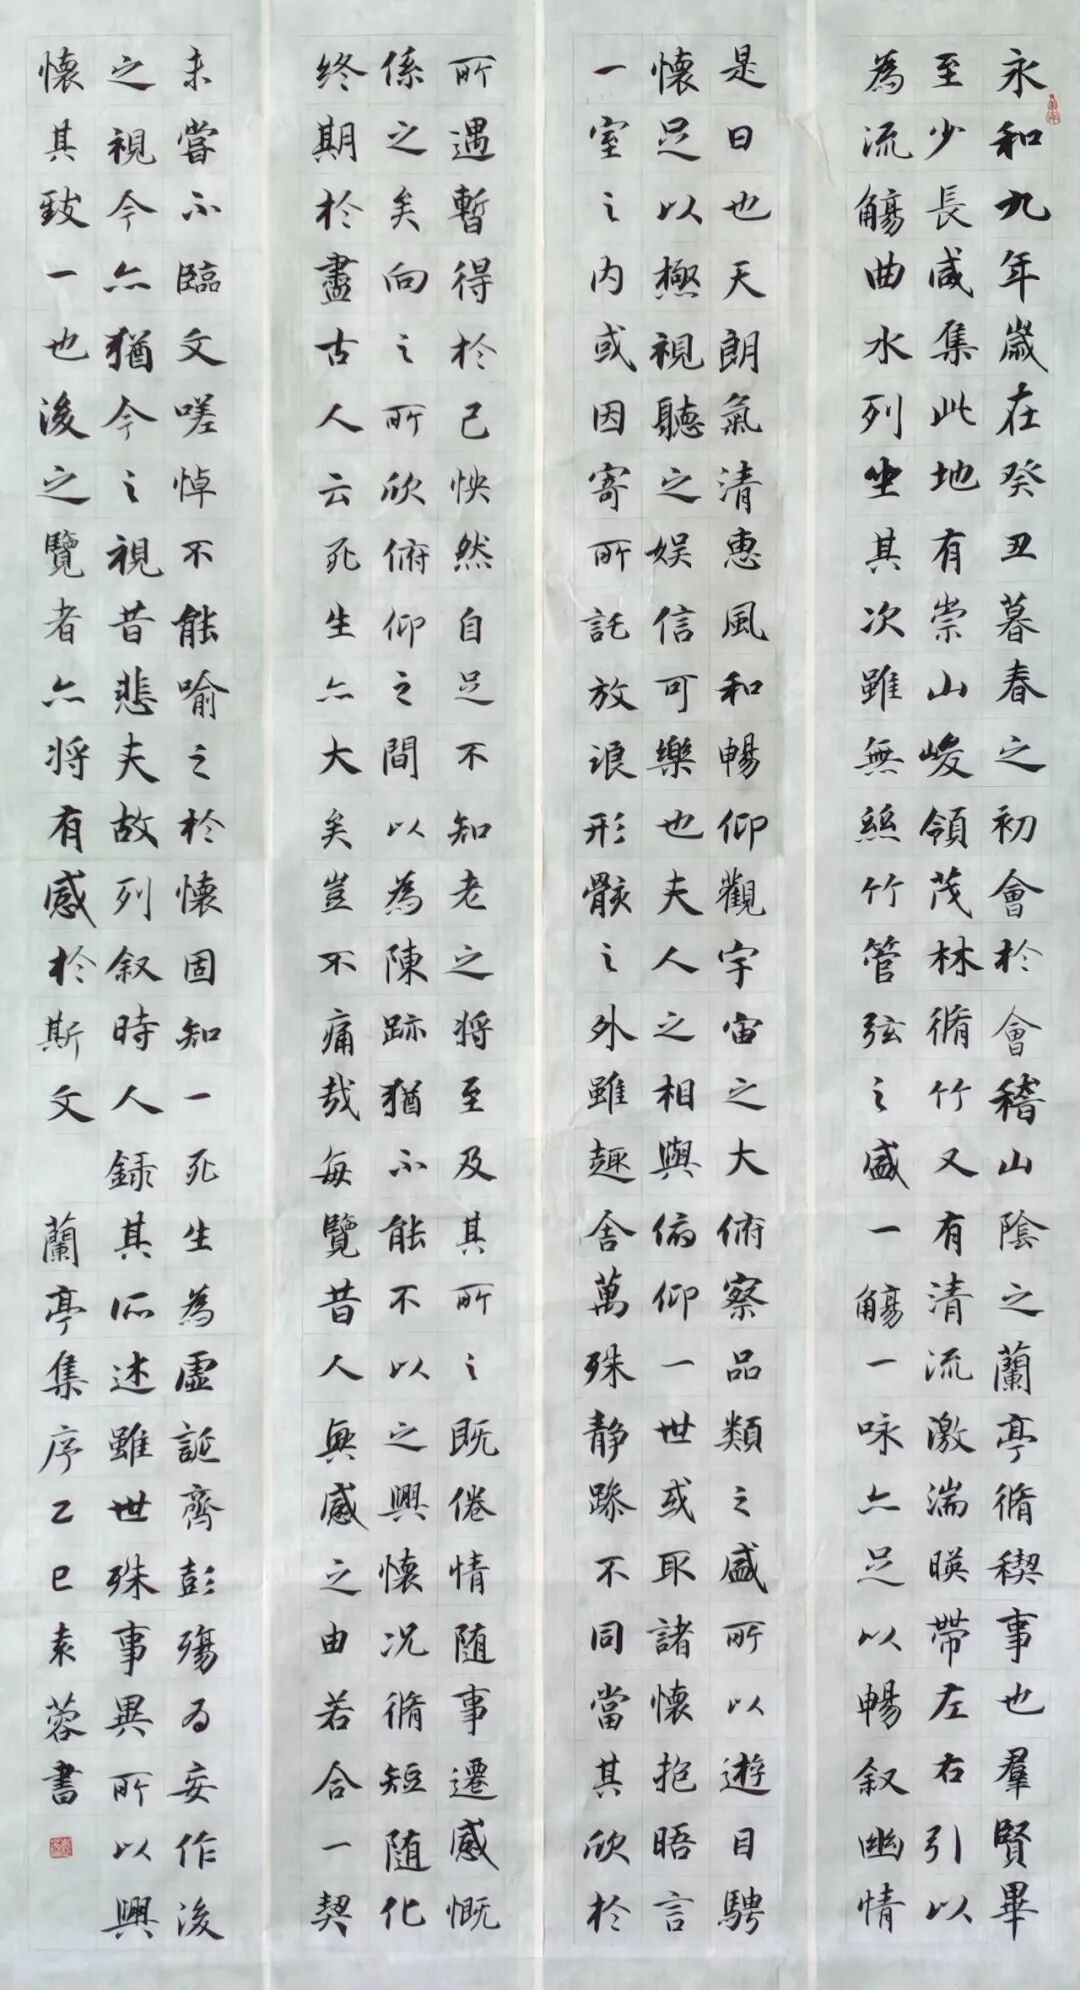 永和九年歲在癸丑暮春之初會於會稽山陰之蘭亭脩稧事也羣賢畢
至少長咸集此地有崇山峻領茂林脩竹又有清流激湍暎帶左右引以
為流觴曲水列坐其次雖無絲竹管弦之盛一觴一咏亦足以暢叙幽情
是日也天朗氣清惠風和暢仰觀宇宙之大俯察品類之盛所以遊目騁
懷足以極視聽之娱信可樂也夫人之相與俯仰一世或取諸懷抱晤言
一室之内或因寄所託放浪形骸之外雖趣舍萬殊静躁不同當其欣於
所遇暫得於己怏然自足不知老之将至及其所之既倦情随事遷感慨
係之矣向之所欣俯仰之間以為陳跡猶不能不以之興懷況脩短随化
终期於盡古人云死生亦大矣豈不痛哉每覽昔人興感之由若合一契
未嘗不臨文嗟悼不能喻之於懷固知一死生為虛誕齊彭殤為妄作後
之視今亦猶今之視昔悲夫故列叙時人録其所述雖世殊事異所以興
懷其致一也後之覽者亦将有感於斯文 蘭亭集序乙巳袁蓉書